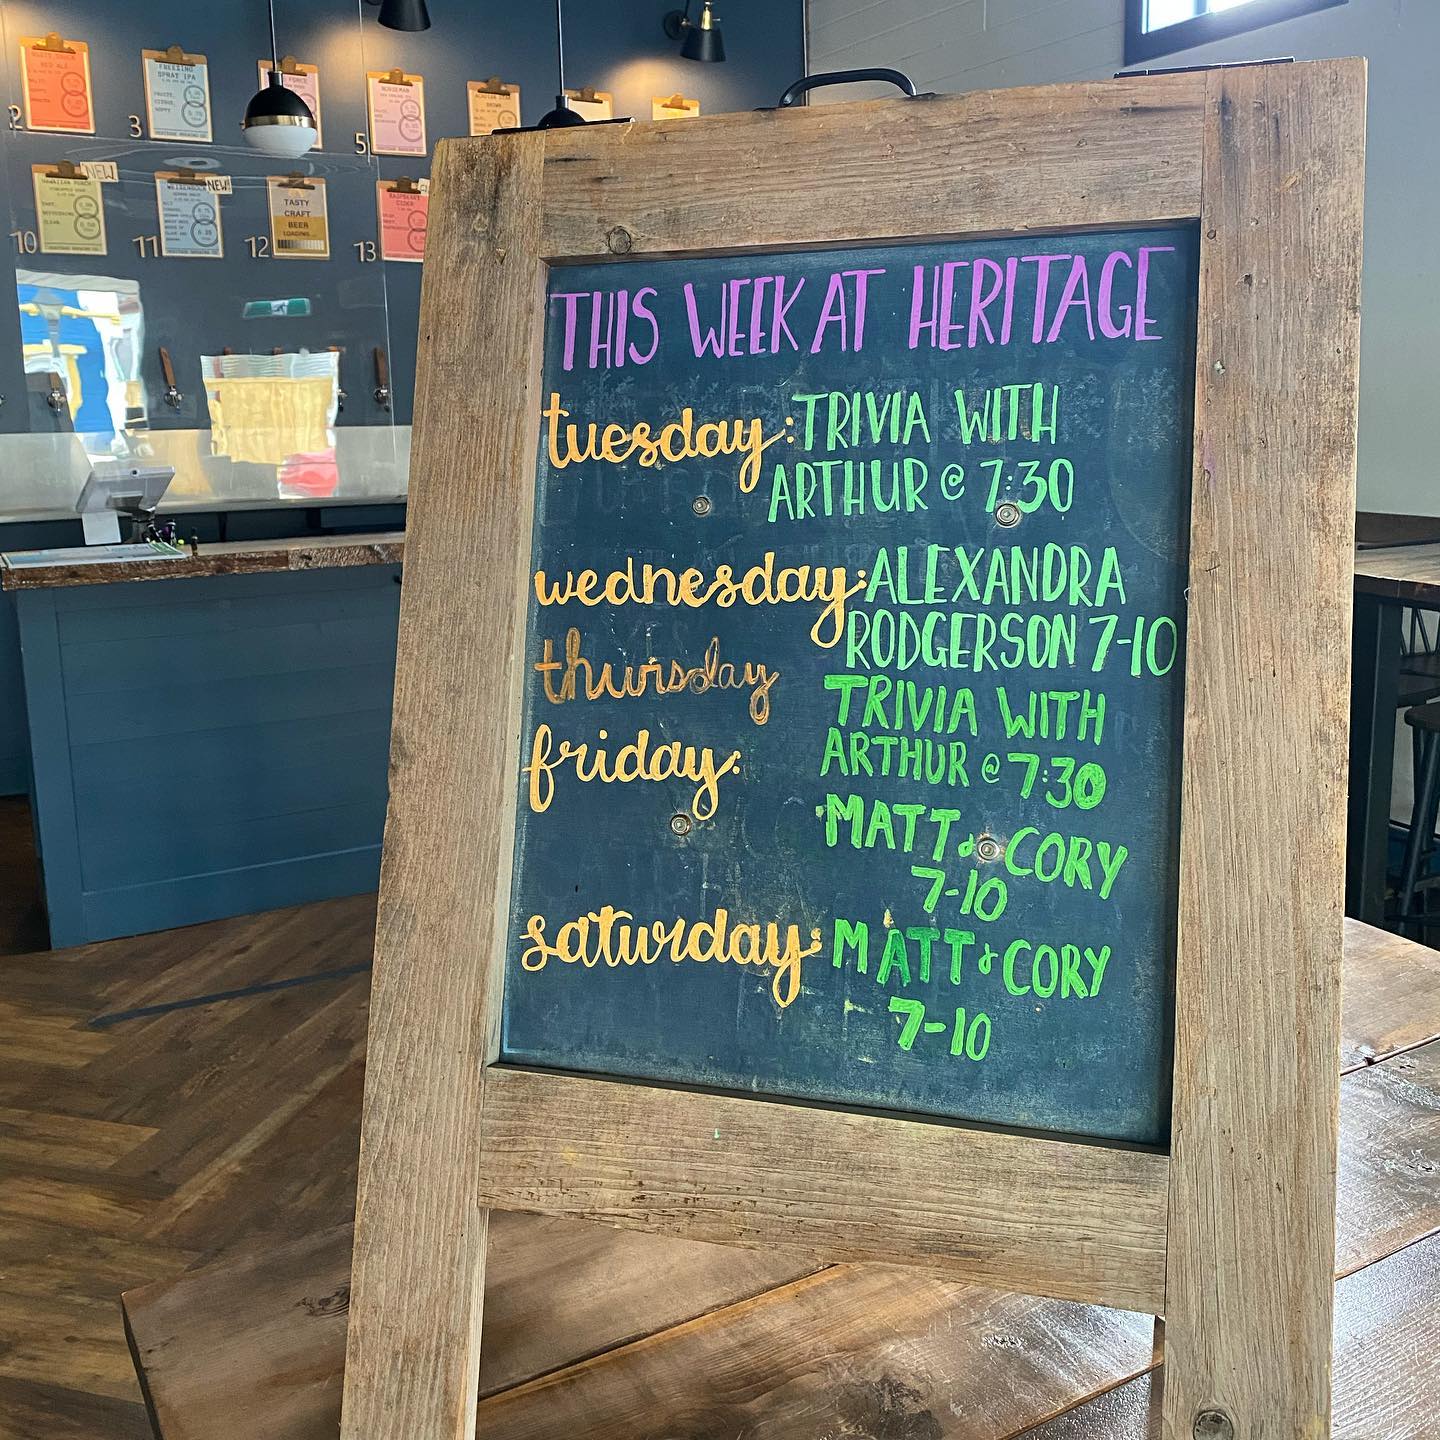 THIS WEEK AT HERITAGE
tuesday: TRIVIA WITH
ARTHUR @ 7:30
wednesday: ALEXANDRA
RODGERSON 7-10
thursday TRIVIA WITH
ARTHUR @ 7:30
friday: MATT & CORY
7-10
saturday: MATT & CORY
7-10
2
RED ALE
3
FREEZING
SPRAY IPA
FRUITY,
CITRUS,
HOPPY
5
NORSEMAN
10
HAWAIIAN PUNCH
NEW!
11
WEIZENBOCK
NEW!
12
TASTY
CRAFT
BEER
LOADING...
13
RASPBERRY
CIDER